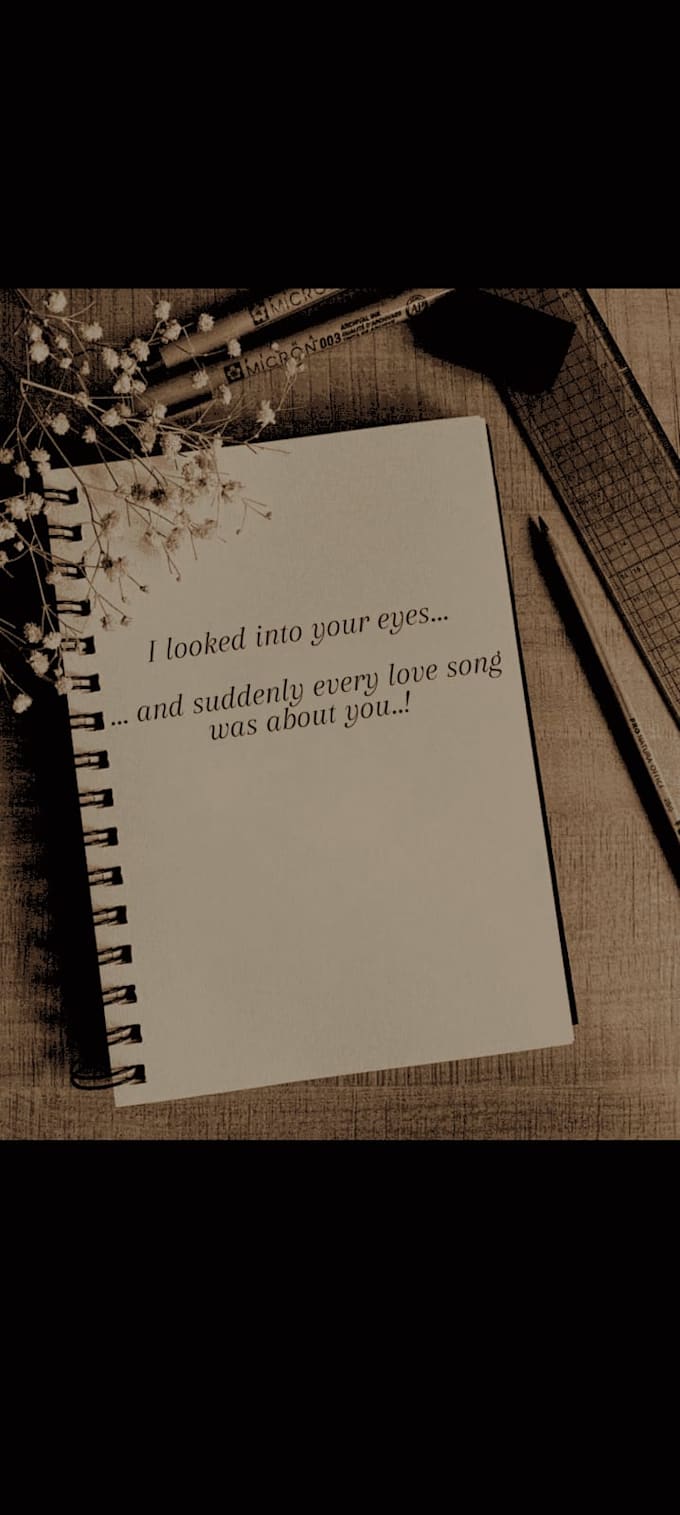 MICRO
MICRON 003 ARCHIVAL INK
I looked into your eyes...
... and suddenly every love song
was about you..!